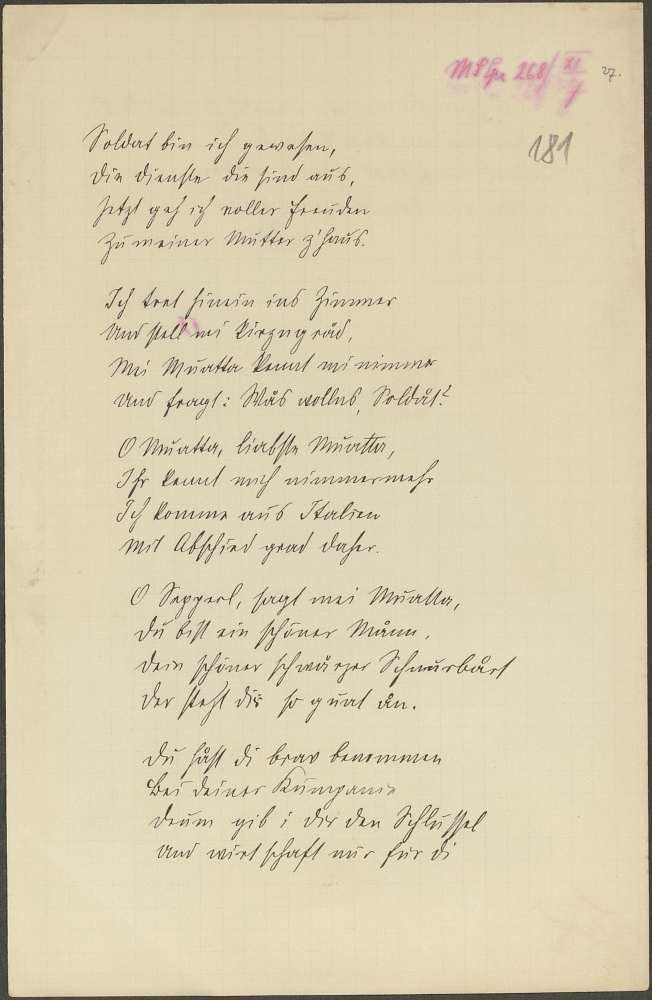 27.
181
Soldat bin ich gewesen,
Die Dienste die sind aus,
Jetzt geh ich voller Freuden
Zu meiner Mutter z'Haus.
Ich tret hinein ins Zimmer
Und stell mi kirzngråd,
Mei Muatta kennt mi nimmer
Und fragt: Wås wollns, Soldåt?
O Muatta, liabste Muatta,
Ihr kennt mich nimmermehr
Ich komme aus Italien
Mit Abschied grad daher.
O Sepperl, sagt mei Muatta,
Du bist ein schöner Månn,
Dein schöner schwårzer Schnurbårt
Der steht dir so guat an.
Du håst di brav benommen
Bei deiner Kumpanie
Drum gib i dir den Schlüssel
Und wirtschaft nur für di